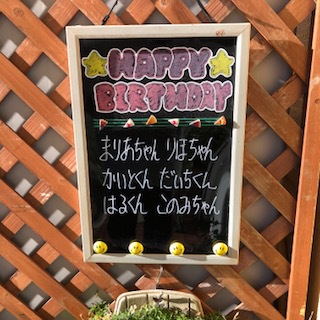 HAPPY
BIRTHDAY
まりあちゃん りほちゃん
かいとくん だいちくん
はるくん このみちゃん